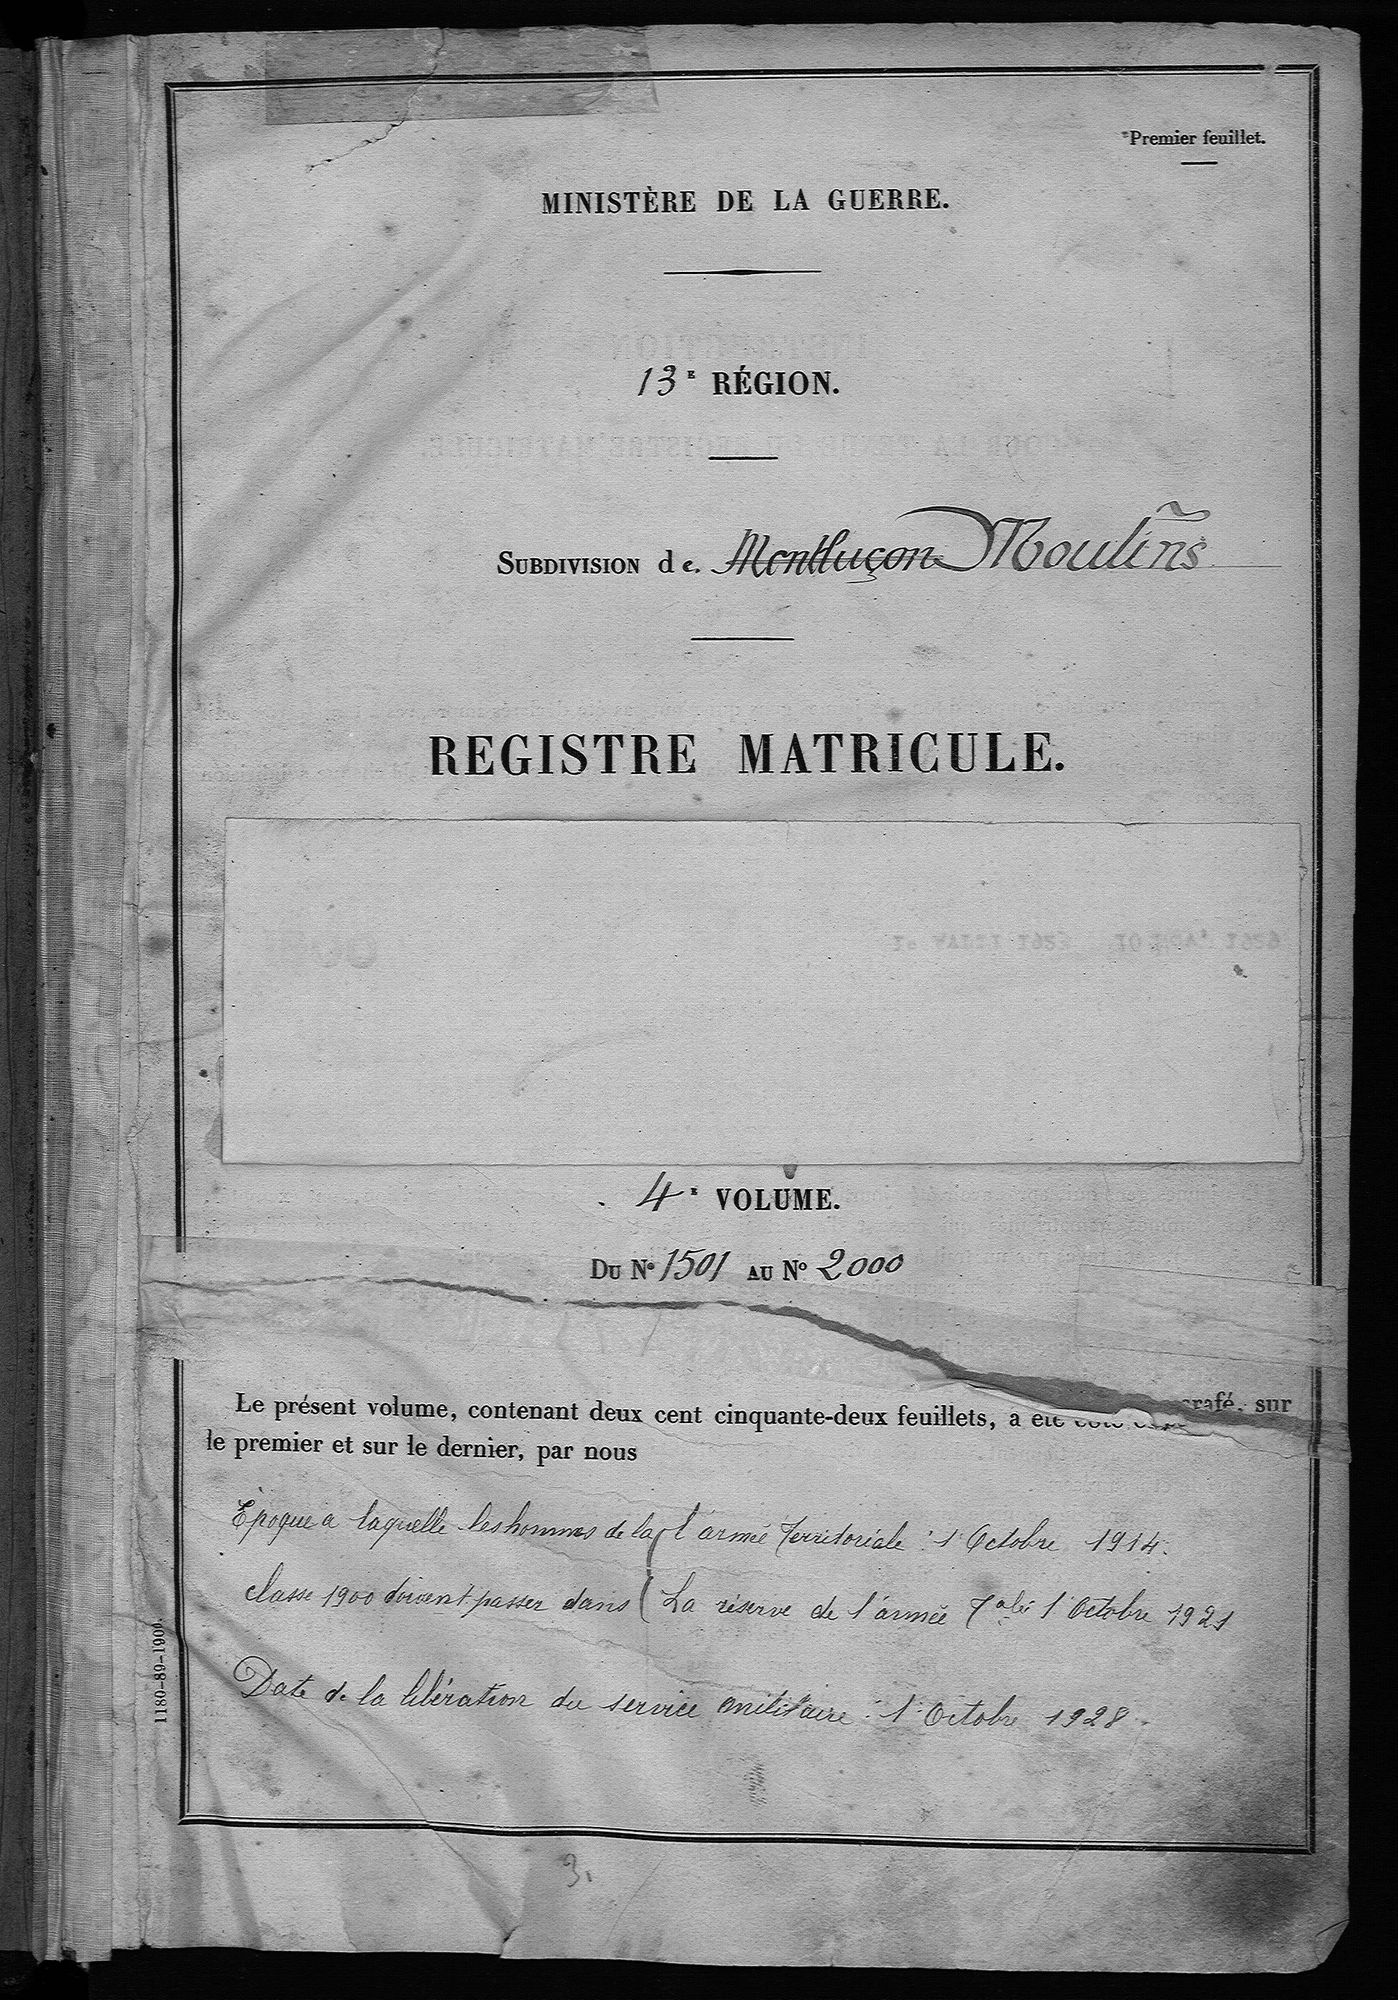 Premier feuillet.
MINISTÈRE DE LA GUERRE.
13E RÉGION.
SUBDIVISION de Montluçon Moulins
REGISTRE MATRICULE.
4E VOLUME.
DU No 1501 AU No 2000
Le présent volume, contenant deux cent cinquante-deux feuillets, a été coté sur
le premier et sur le dernier, par nous
Époque a laquelle les hommes de la l'armée Territoriale : 1 Octobre 1914.
classe 1900 doivent passer dans La réserve de l'armée Tale 1 Octobre 1921
Date de la libération du service militaire : 1 Octobre 1928.
1180-89-1900.
3.